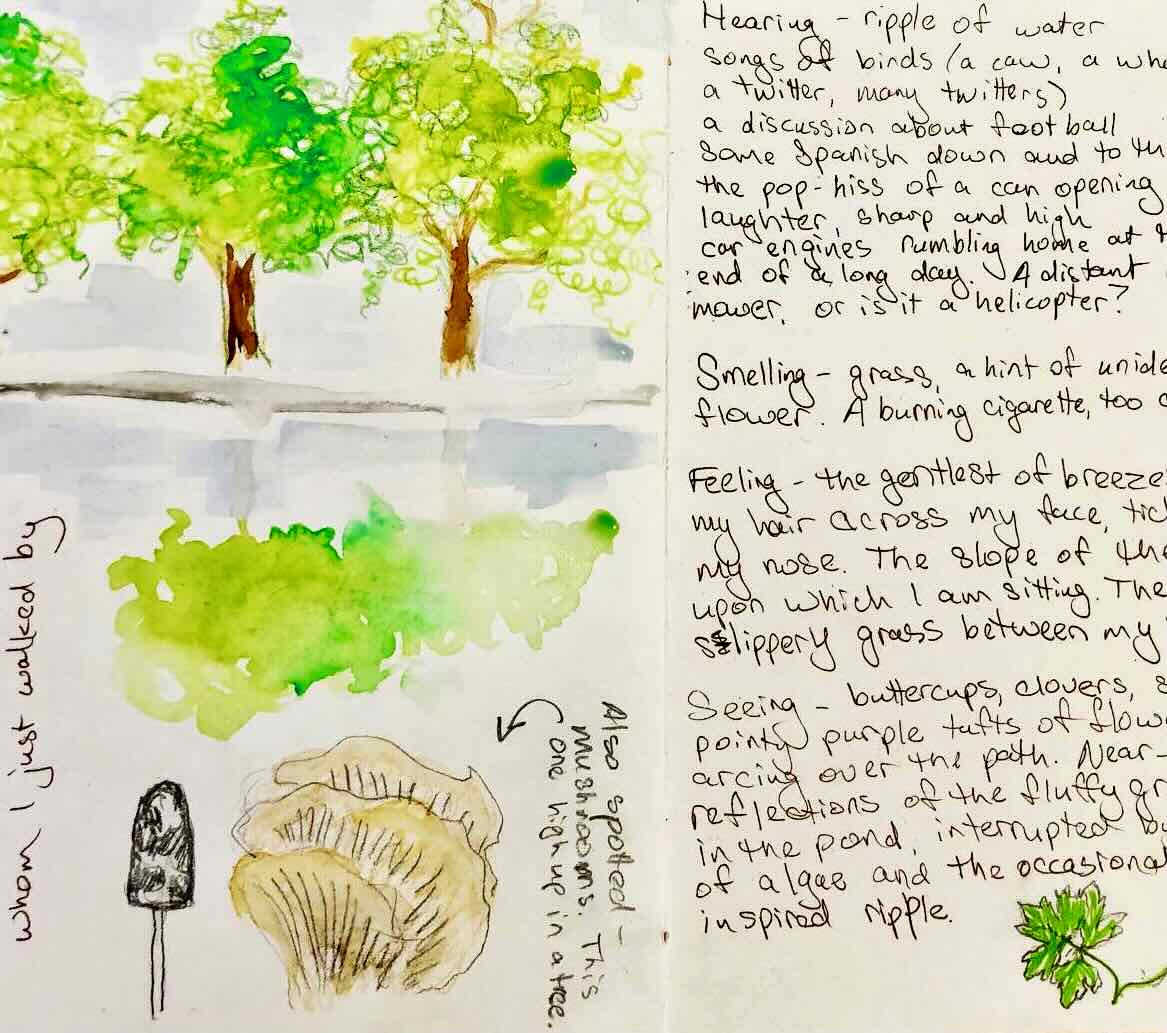 whom I just walked by
Also spotted -
mushrooms. This
one high up in a tree.
Hearing - ripple of water
songs of birds (a caw, a
a twitter, many twitters)
a discussion about football
some Spanish down and to
the pop-hiss of a can opening
laughter, sharp and high
car engines rumbling home at
end of a long day. A distant
mower, or is it a helicopter?
Smelling - grass, a hint of
flower. A burning cigarette, too
Feeling - the gentlest of
my hair across my face,
my nose. The slope of the
upon which I am sitting. The
slippery grass between my
Seeing - buttercups, clovers,
pointy purple tufts of
arcing over the path. Near-
reflections of the fluffy
in the pond, interrupted
of algae and the occasional
inspired ripple.